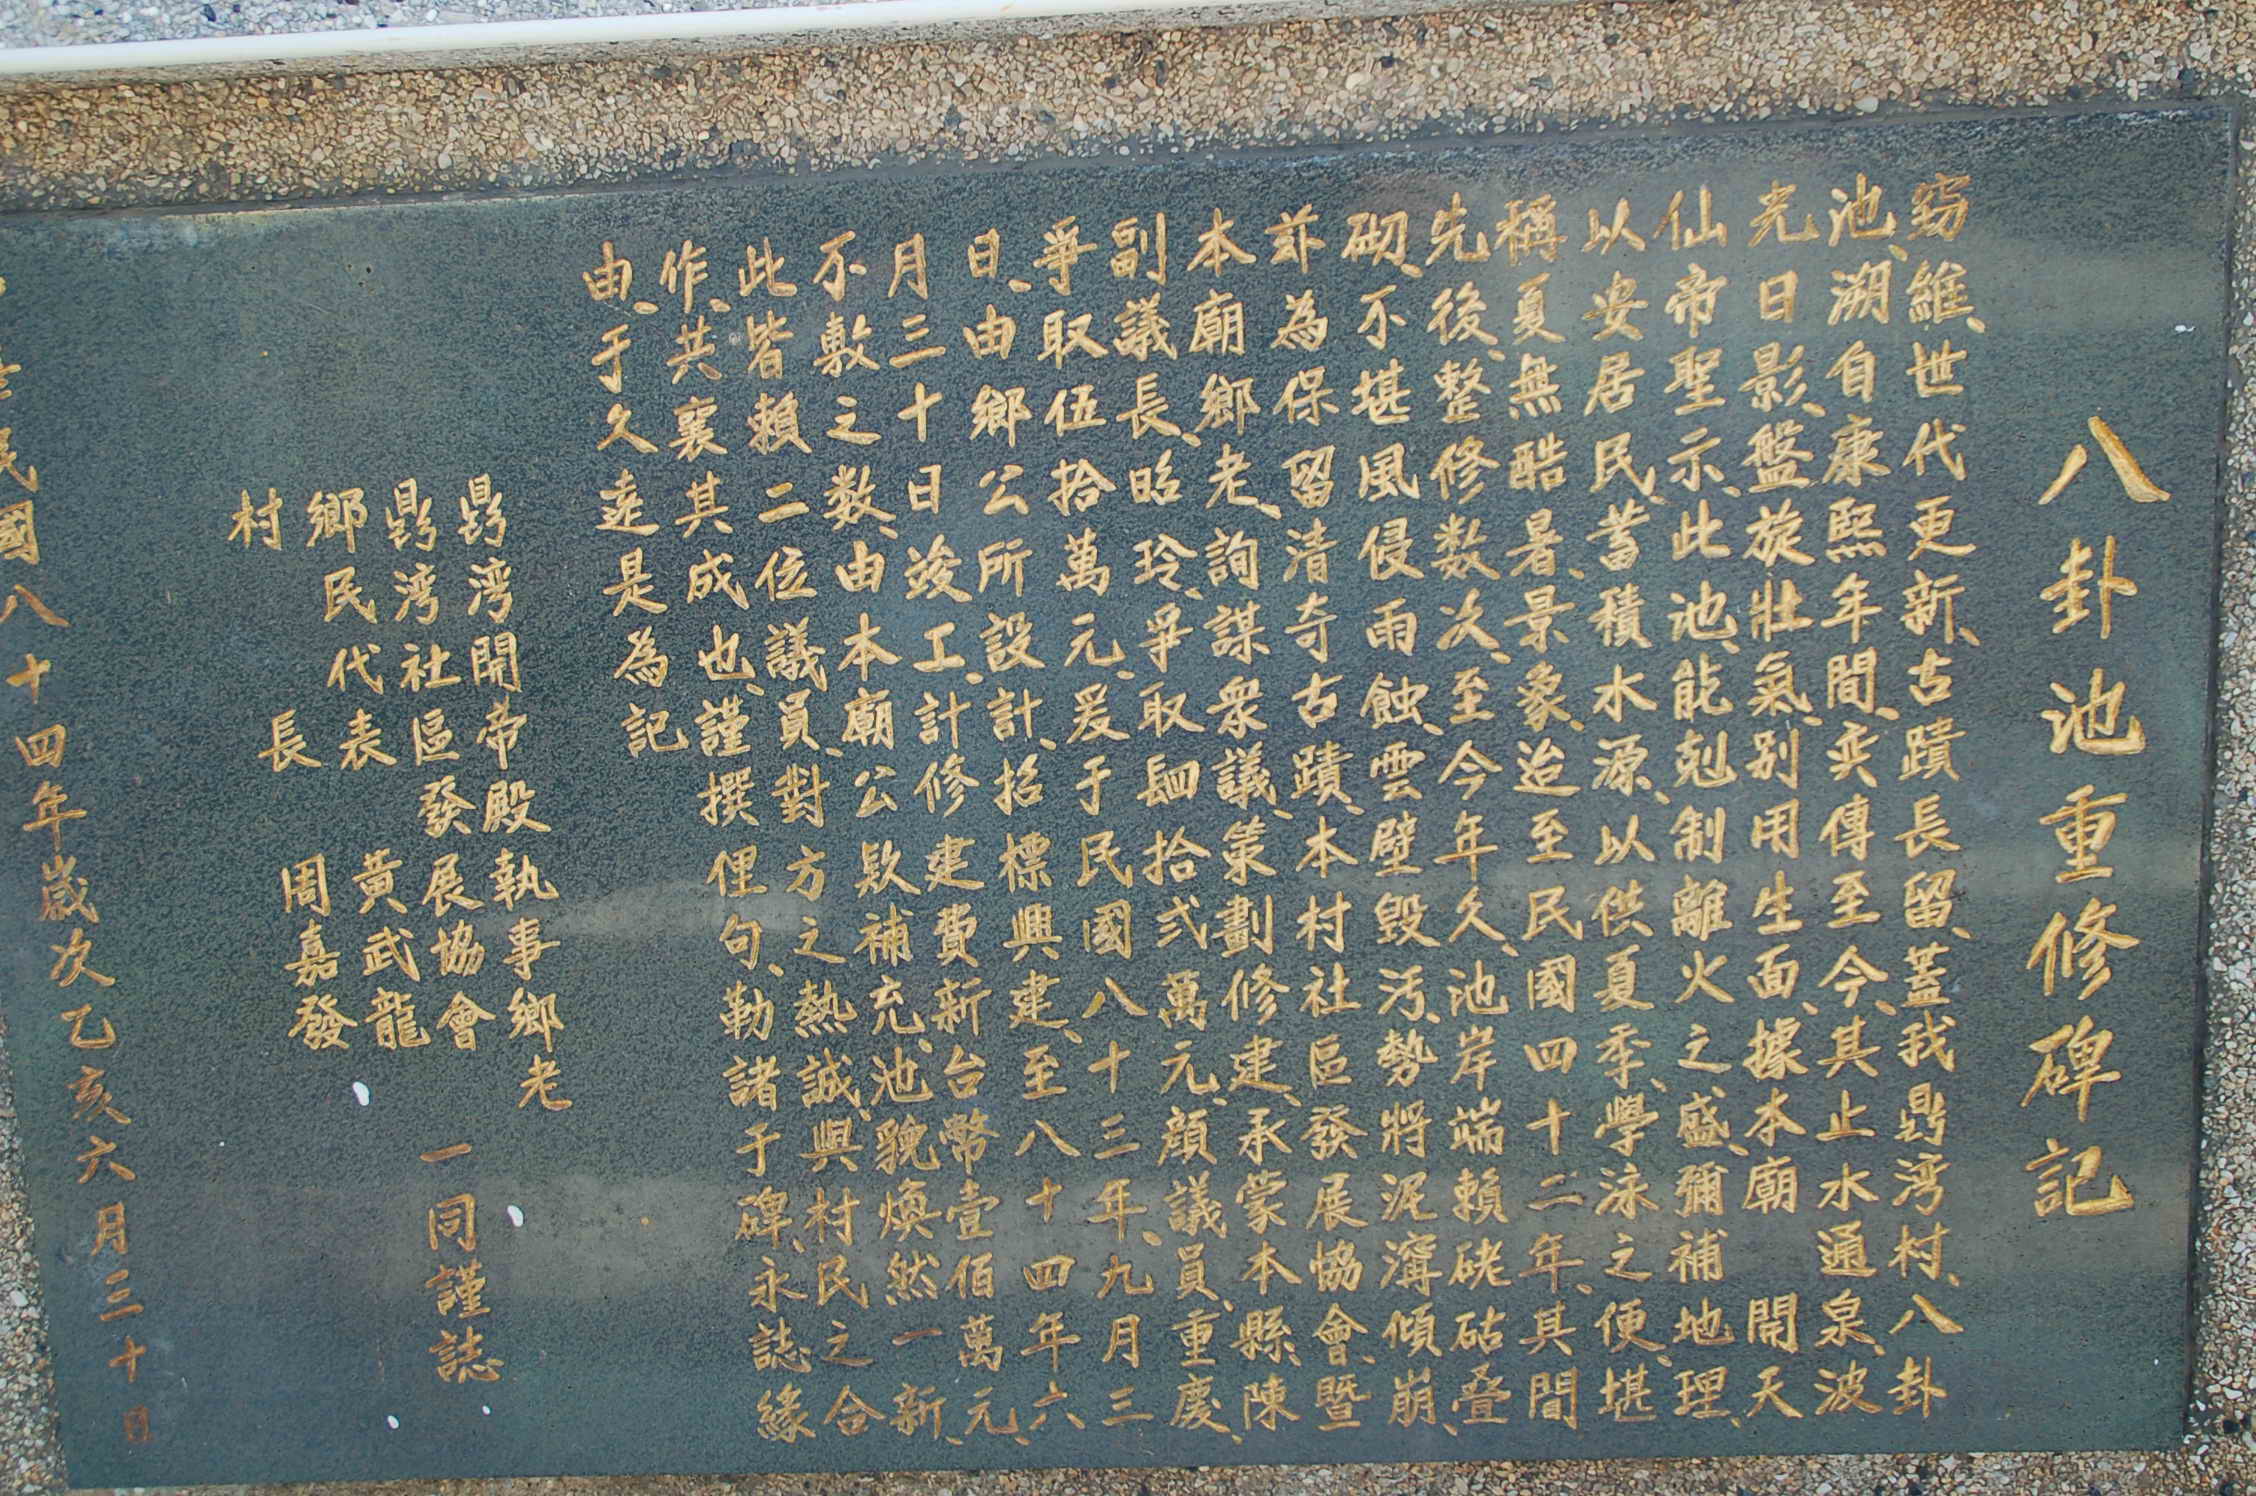 八卦池重修碑記
窃維、世代更新、古蹟長留、蓋我鼎湾村、八卦
池、溯自康熙年間、奕傳至今、其止水通泉、波
光日影、盤旋壯氣、别用生面、據本廟 開天
仙帝聖示、此池、能剋制離火之盛、彌補地理、
以安居民、蓄積水源、以供夏季、學泳之便、堪
稱夏無酷暑、景象、迨至民國四十二年、其間
先後、整修数次、至今年久、池岸端賴硓砧叠
砌、不堪風侵雨蝕、雲壁毀污、勢將泥濘傾崩、
茲為保留清奇古蹟、本村社區發展協會、暨
本廟鄉老、詢謀衆議、策劃修建、承蒙本縣、陳
副議長、昭玲、爭取肆拾弍萬元、顏議員、重慶、
爭取伍拾萬元、爰于民國八十三年、九月三
日、由鄉公所設計、招標興建、至八十四年六
月三十日竣工、計修建費新台幣壹佰萬元、
不敷之数、由本廟公欵補充、池貌煥然一新、
此皆賴二位議員、對方之熱誠、與村民之合
作、共襄其成也、謹撰俚句、勒諸于碑、永誌緣
由、于久遠是為記
鼎湾開帝殿執事鄉老
鼎湾社區發展協會 一同謹誌
鄉民代表 黃武龍
村長 周嘉發
民國八十四年歲次乙亥六月三十日